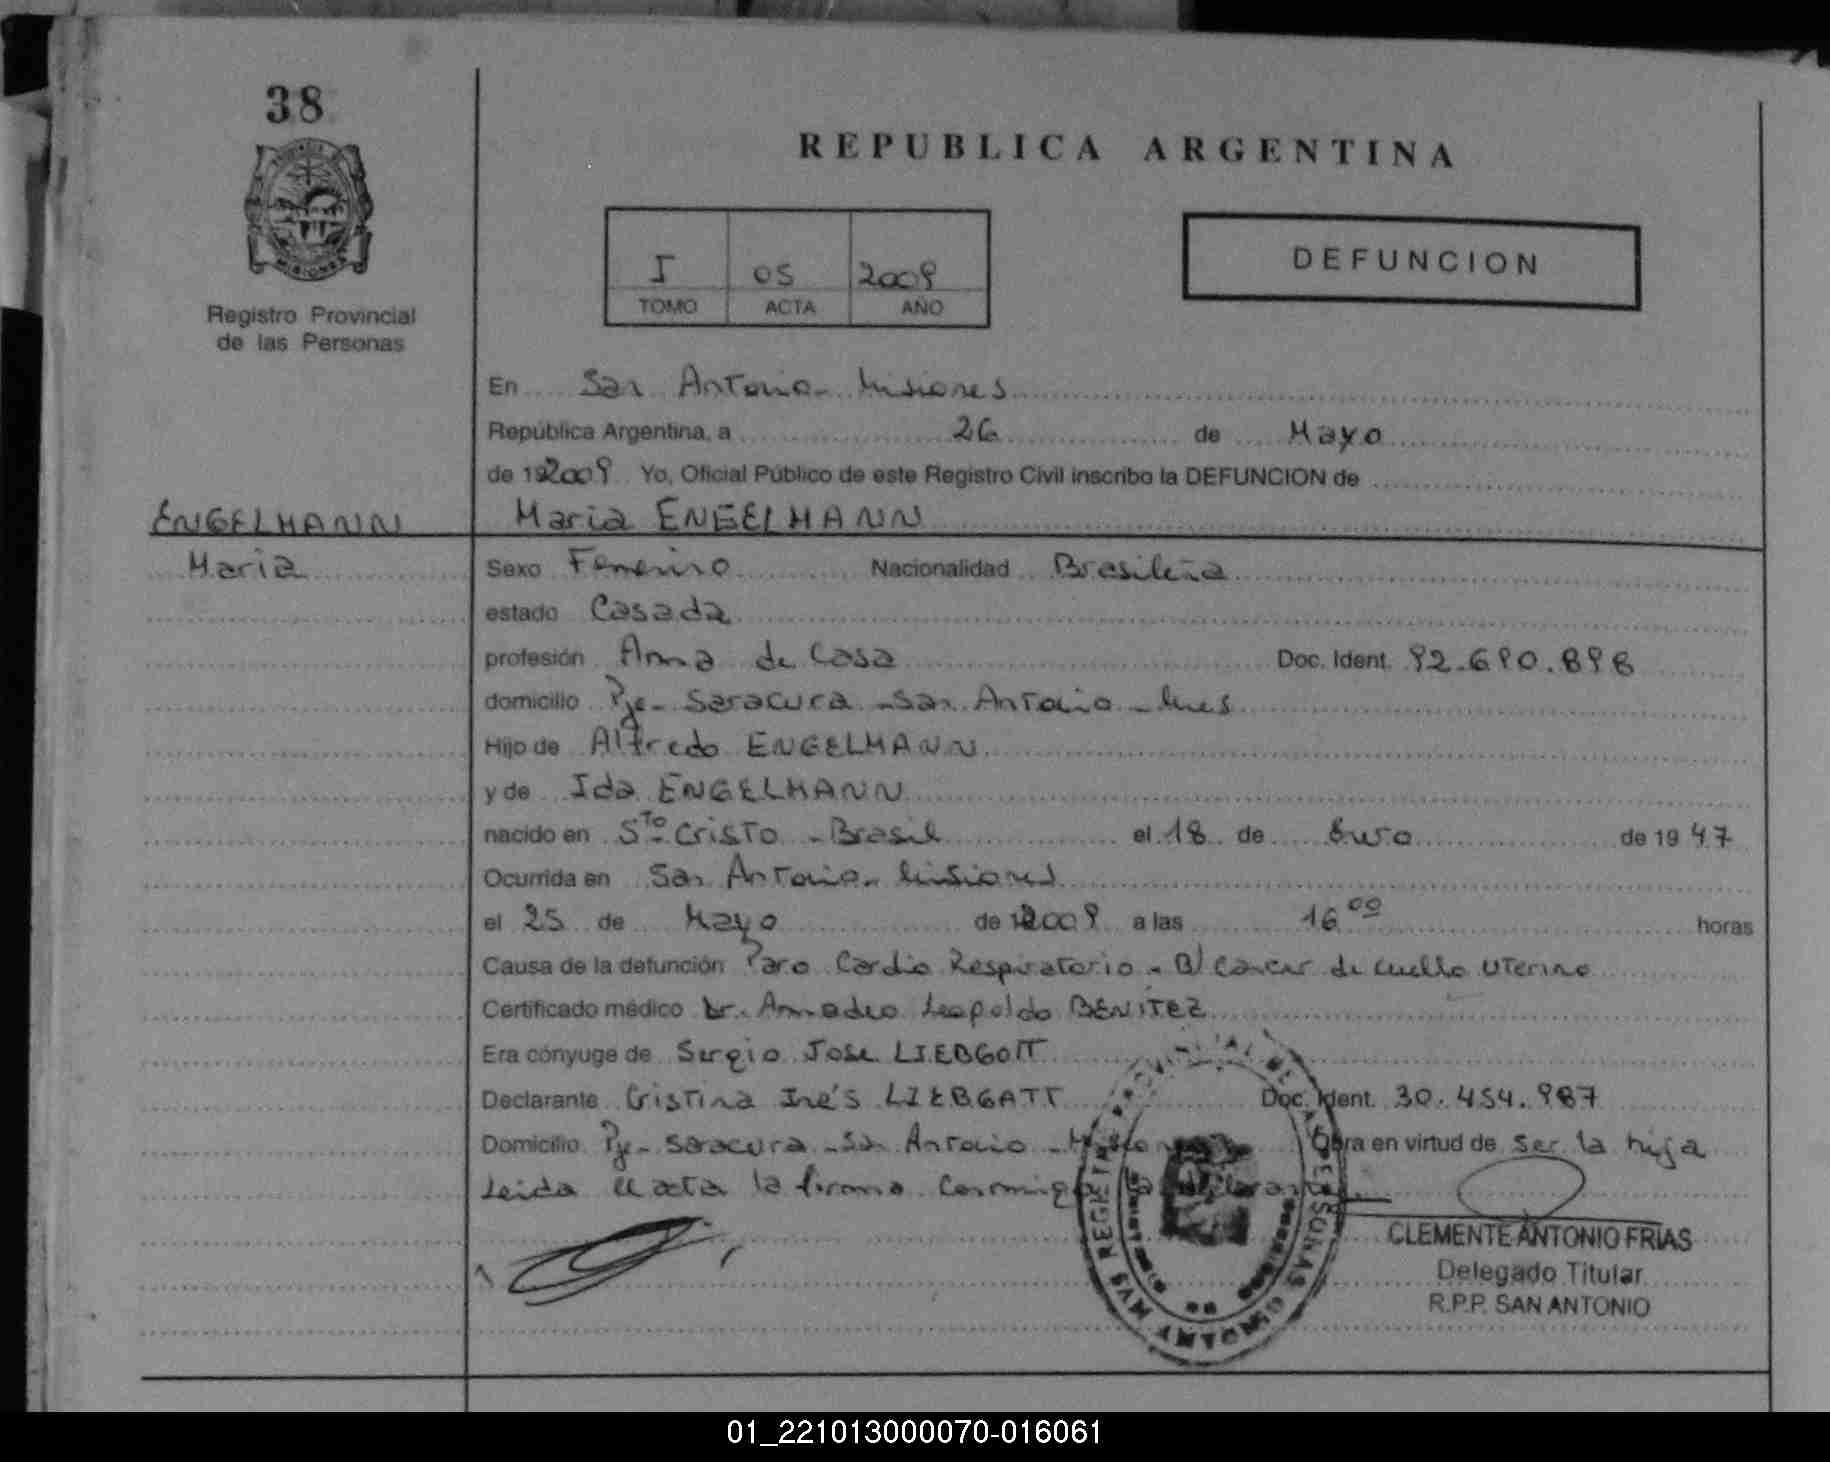 38
REPUBLICA ARGENTINA
MISIONES
Registro Provincial
de las Personas
I 05 2009
TOMO ACTA AÑO
DEFUNCION
En San Antonio - Misiones
República Argentina, a 26 de Mayo
de 192009 Yo, Oficial Público de este Registro Civil inscribo la DEFUNCION de
ENGELMANN Maria ENGELMANN
Maria
Sexo Femenino Nacionalidad Brasileña
estado Casada
profesión Ama de Casa Doc. Ident. 92.690.898
domicilio Pje - Saracura - San Antonio - Mnes
Hijo de Alfredo ENGELMANN
y de Ida ENGELMANN
nacido en Sto Cristo - Brasil el 18 de de 19 47
Ocurrida en San Antonio - Misiones
el 25 de Mayo de 2009 a las 16 00 horas
Causa de la defunción Paro Cardio Respiratorio - B) Cancer de cuello uterino
Certificado médico Dr. Amadeo Leopoldo BENITEZ
Era cónyuge de Sergio Jose LIEBGOTT
Declarante Cristina Inés LIEBGATT Doc. Ident. 30.454.987
Domicilio Pje - Saracura - San Antonio - Obra en virtud de ser la hija
Leida el acta la firma
CLEMENTE ANTONIO FRIAS
Delegado Titular
R.P.P. SAN ANTONIO
01_221013000070-016061